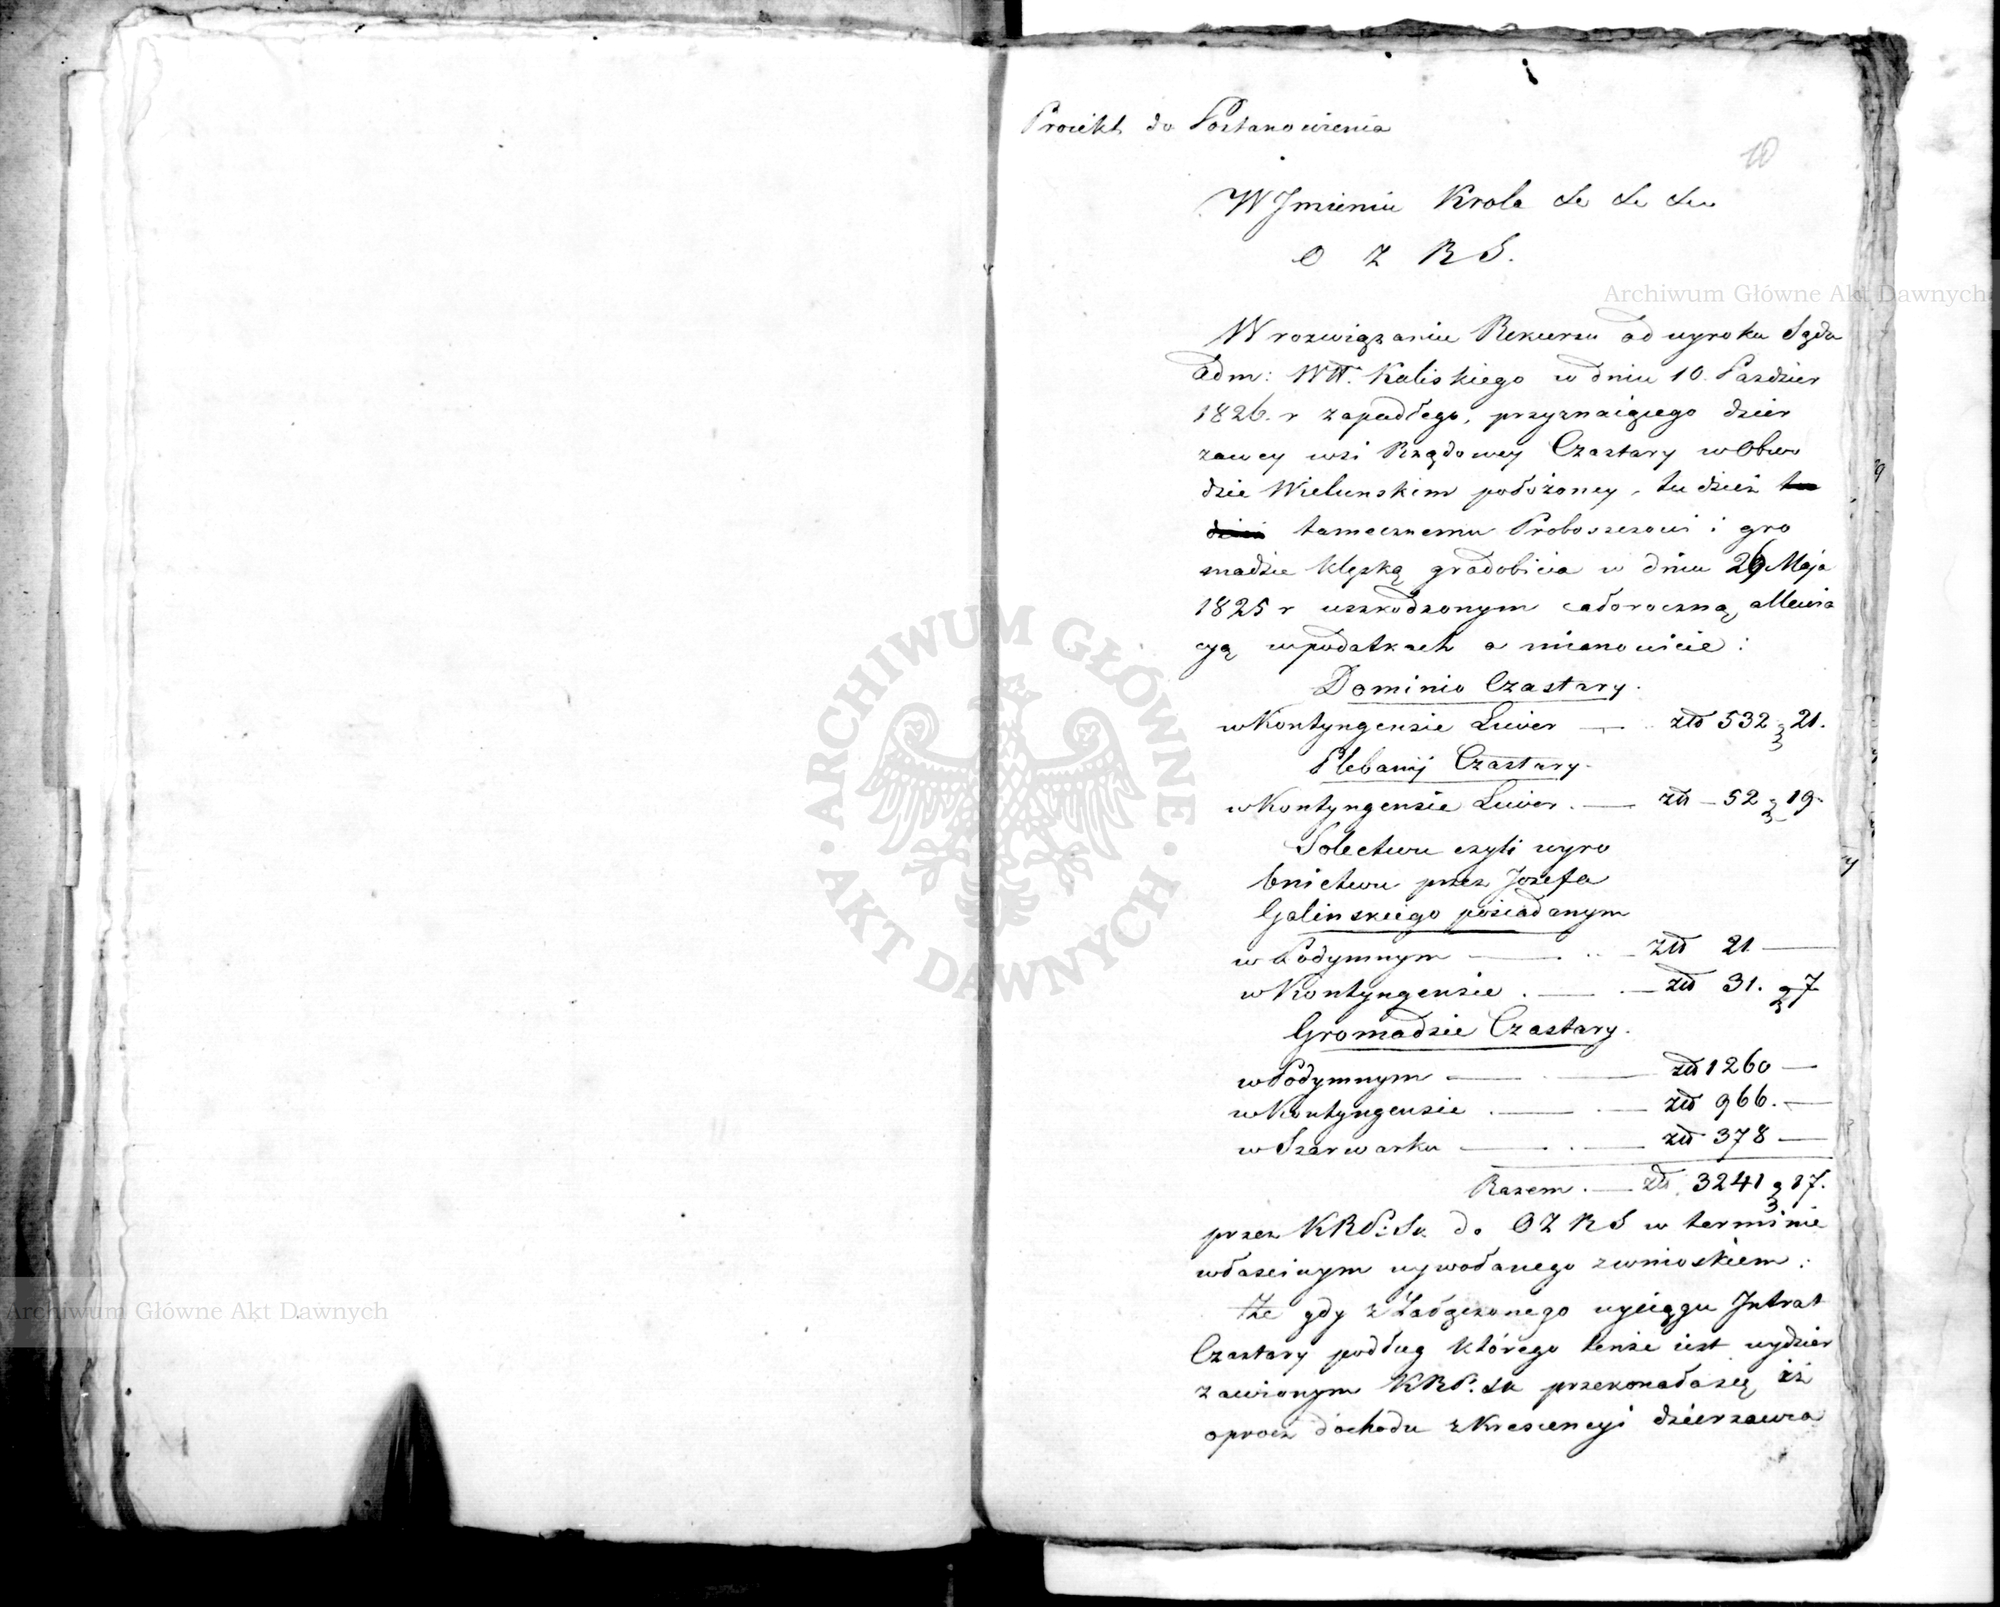 Proiekt do Postanowienia
10
W Jmieniu Krola &c &c &c
O Z R S.
W rozwiązaniu Rekursu od wyroku Sądu
Adm: Wtt. Kaliskiego w dniu 10. Pazdzier
1826. r zapadłego, przyznaiącego dzier
zawcy wsi Rządowey Czastary w Obwo
dzie Wielunskim położoney, tudzież tu
dzież tamecznemu Proboszczowi i gro
madzie klęską gradobicia w dniu 26 Maja
1825 r uszkodzonym całoroczną allewia
cyą w podatkach a mianowicie:
Dominio Czastary.
w Kontyngensie Liwer — złł 532 g 21.
Plebanij Czastary.
w Kontyngensie Liwer. — złł — 52 g 19.
Sołectwu czyli wyro
bnictwu przez Jozefa
Galinskiego posiadanym
w Podymnym — złł 21 —
w Kontyngensie . — złł 31. g 7
Gromadzie Czastary.
w Podymnym — złł 1260 —
w Kontyngensie . — złł 966. —
w Szarwarku — złł 378 —
Razem . — złł. 3241 g 17.
przez KRP: Sk. do OZRS w terminie
właściwym wywołanego z wnioskiem:
Że gdy z załączonego wyciągu Jntrat
Czastary podług którego tenże iest wydzier
zawionym KRP. Sk przekonała się iż
oprócz dochodu z Krescencyi dzierzawca
Archiwum Główne Akt Dawnych
Archiwum Główne Akt Dawnych
ARCHIWUM GŁÓWNE
AKT DAWNYCH